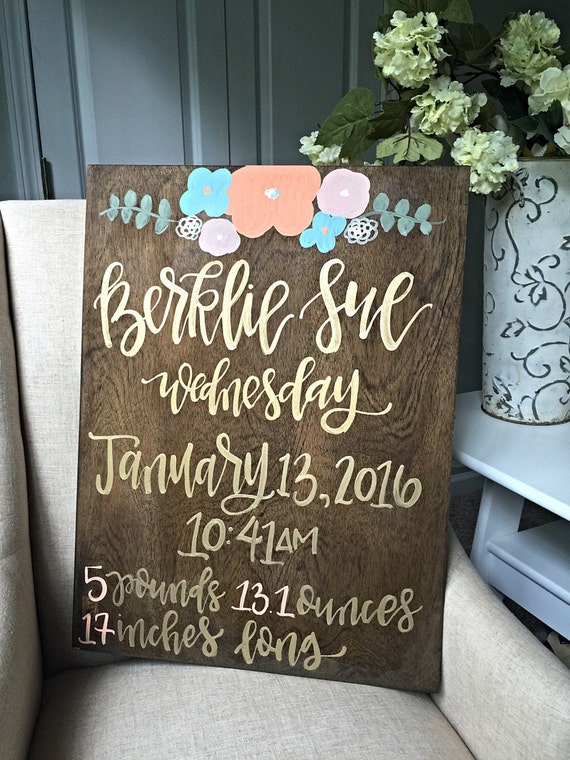 Berklie Sue
Wednesday
January 13, 2016
10:41AM
5 pounds 13.1 ounces
17 inches long